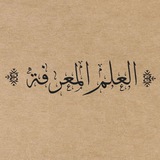 العلم المعرفة